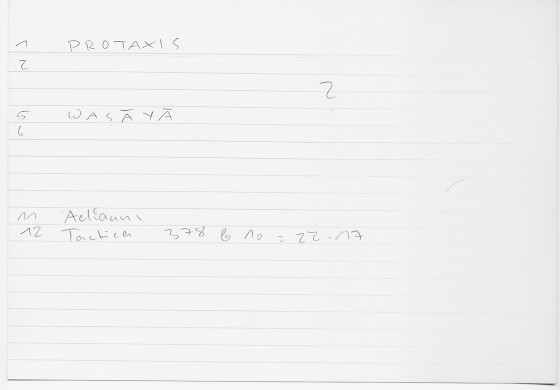 1 PROTAXIS
2
?
5 WAṢĀYĀ
6
11 Aelianus
12 Tactica 378 b 10 = 22.17